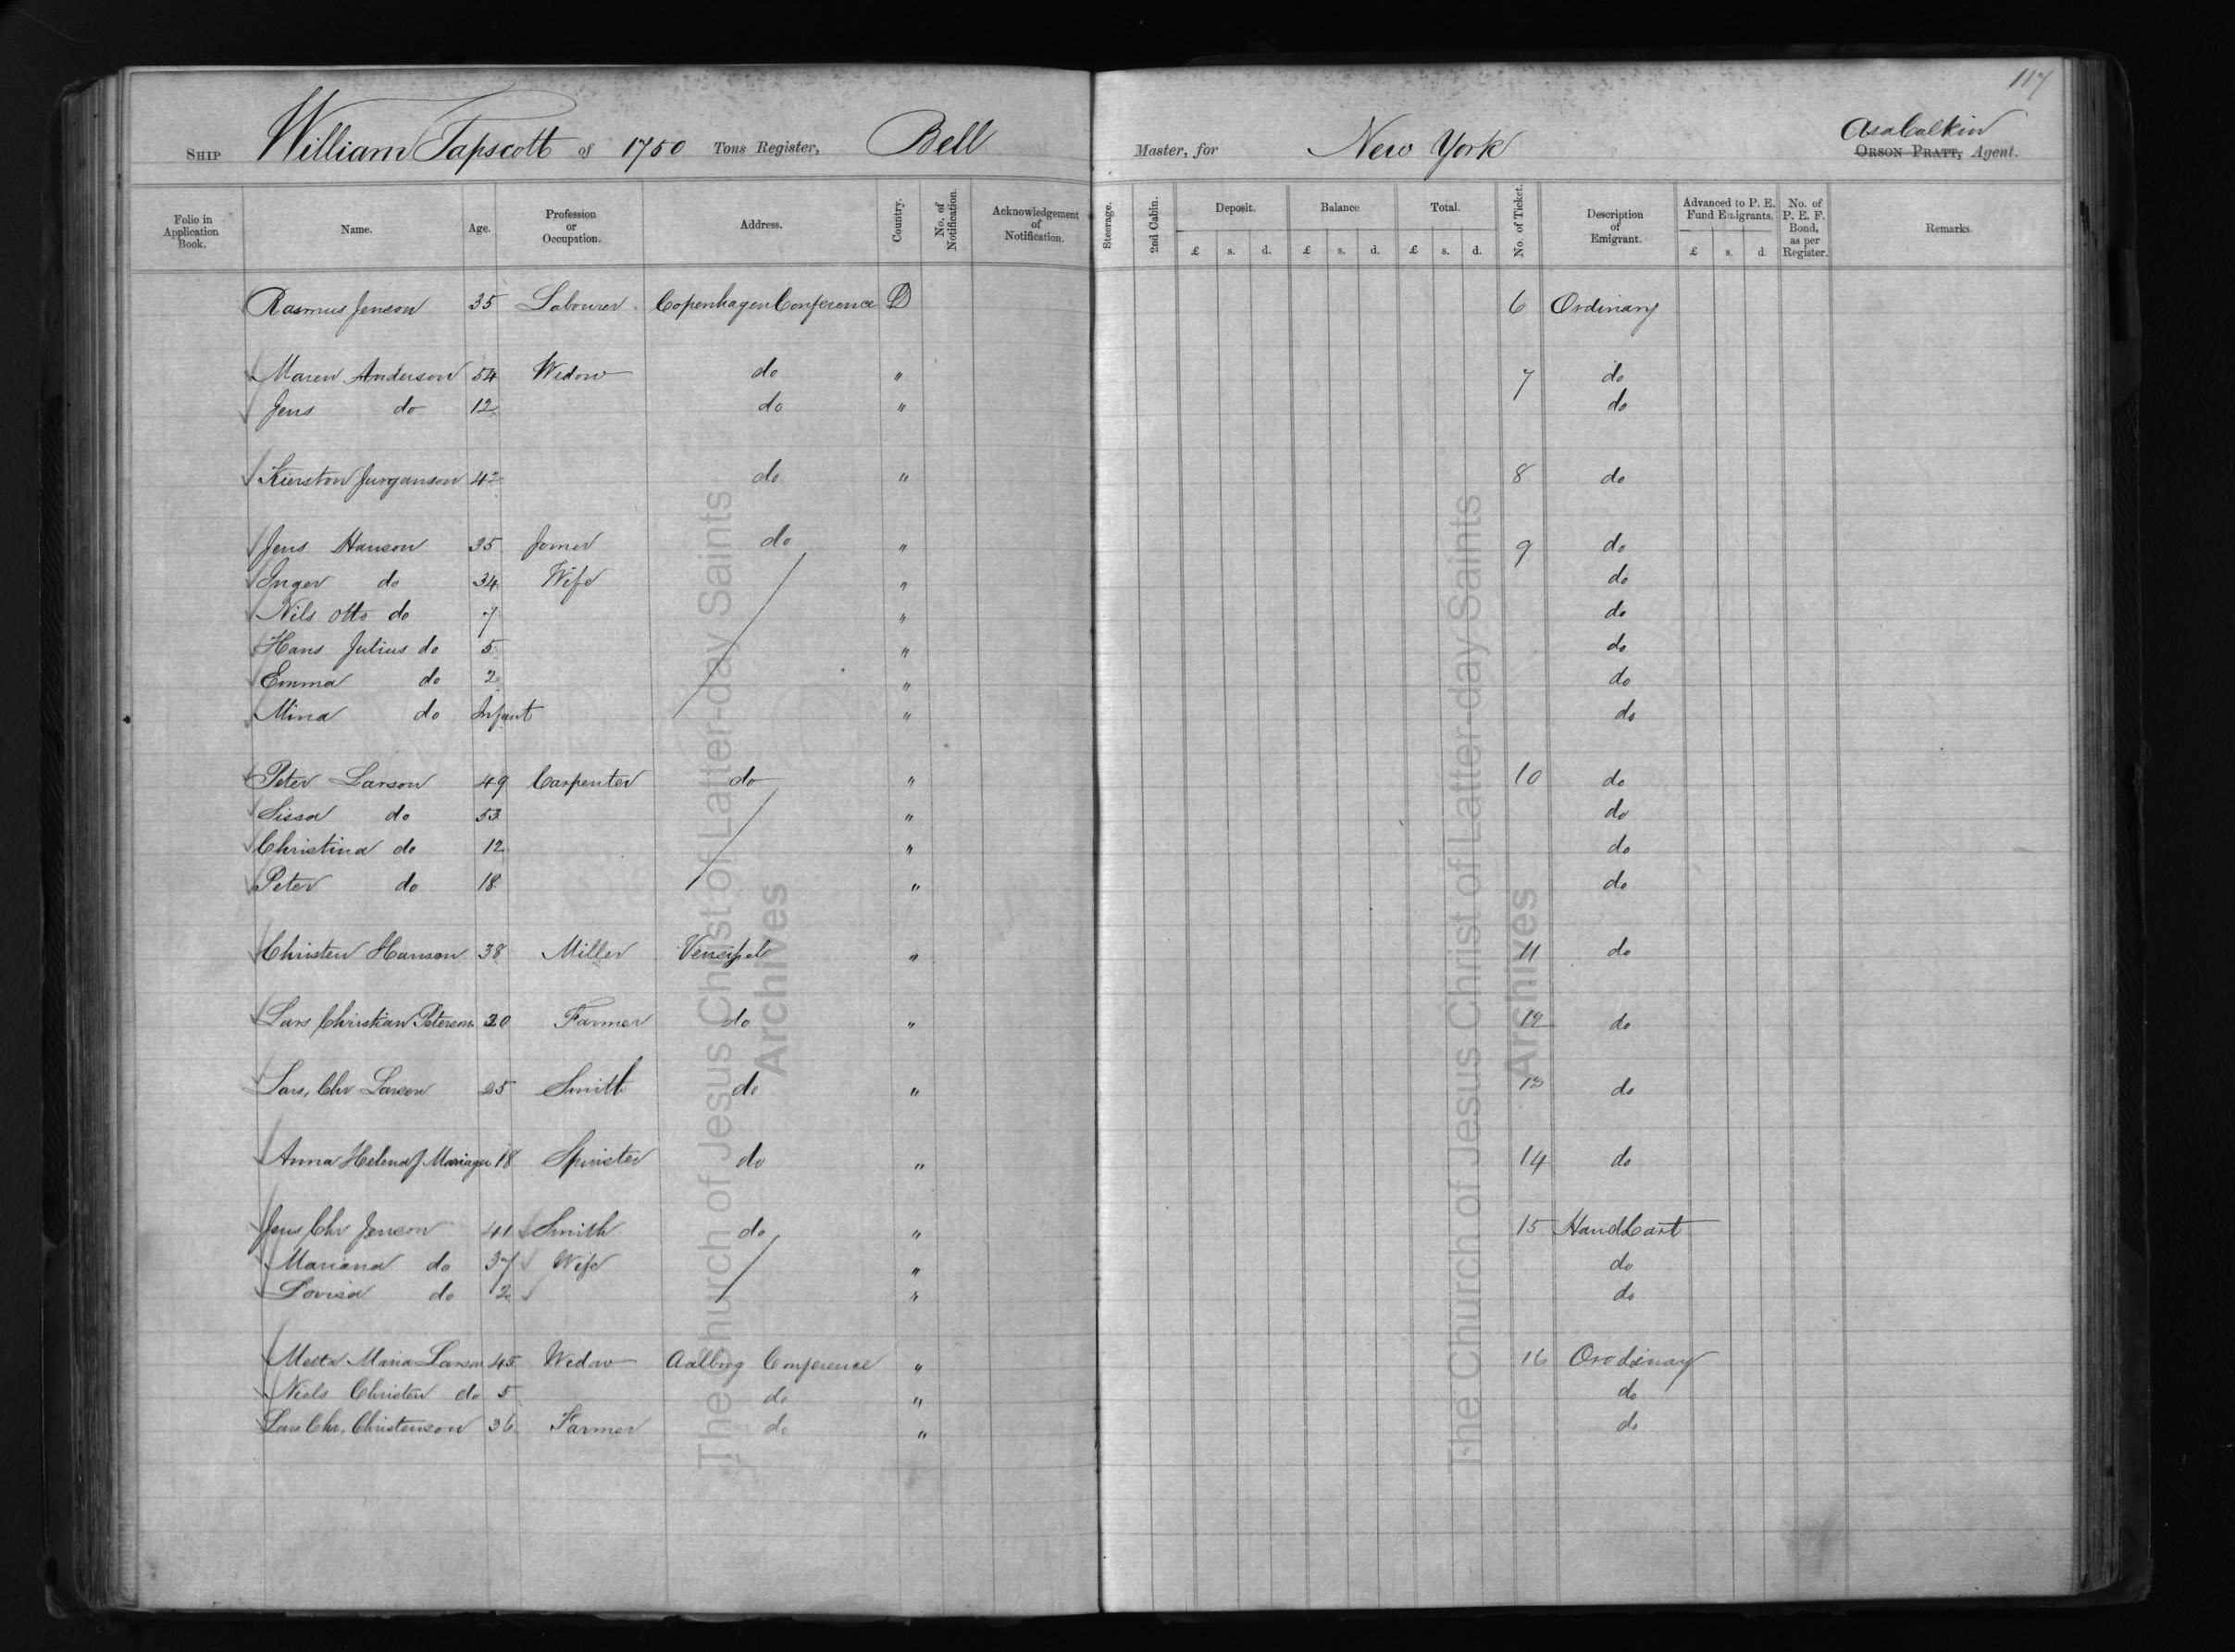 117
SHIP William Tapscott of 1750 Tons Register, Bell Master, for New York Asa Calkin ORSON PRATT, Agent.
Folio in Application Book. Name. Age. Profession or Occupation. Address. Country. No. of Notification. Acknowledgement of Notification. Steerage. 2nd Cabin. Deposit. Balance Total. No. of Ticket. Description of Emigrant. Advanced to P. E. Fund Emigrants. No. of P. E. F. Bond, as per Register. Remarks.
£ s. d. £ s. d. £ s. d. £ s. d.
Rasmus Jenson 35 Labourer Copenhagen Conference D 6 Ordinary
Maren Anderson 54 Widow do " 7 do
Jens do 12 do " do
Kierston Jurganson 42 do " 8 do
Jens Hanson 35 Joiner do " 9 do
Inger do 34 Wife " do
Nils Otto do 7 " do
Hans Julius do 5 " do
Emma do 2 " do
Mina do Infant " do
Peter Larson 49 Carpenter do " 10 do
Sissa do 53 " do
Christina do 12 " do
Peter do 18 " do
Christen Hanson 38 Miller " 11 do
Lars Christian Peterson 20 Farmer do " 12 do
Lars, Chr Larsen 25 Smith do " 13 do
Anna Helena J Mariager 18 Spinster do " 14 do
Jens Chr Jenson 41 Smith do " 15 Hand Cart
Mariana do 37 Wife " do
Lovisa do 2 " do
Metta Maria Larson 45 Widow Aalborg Conference " 16 Orodinary
Niels Christen do 5 do " do
Lars Chr. Christenson 36 Farmer do " do
The Church of Jesus Christ of Latter-day Saints
Archives
The Church of Jesus Christ of Latter-day Saints
Archives